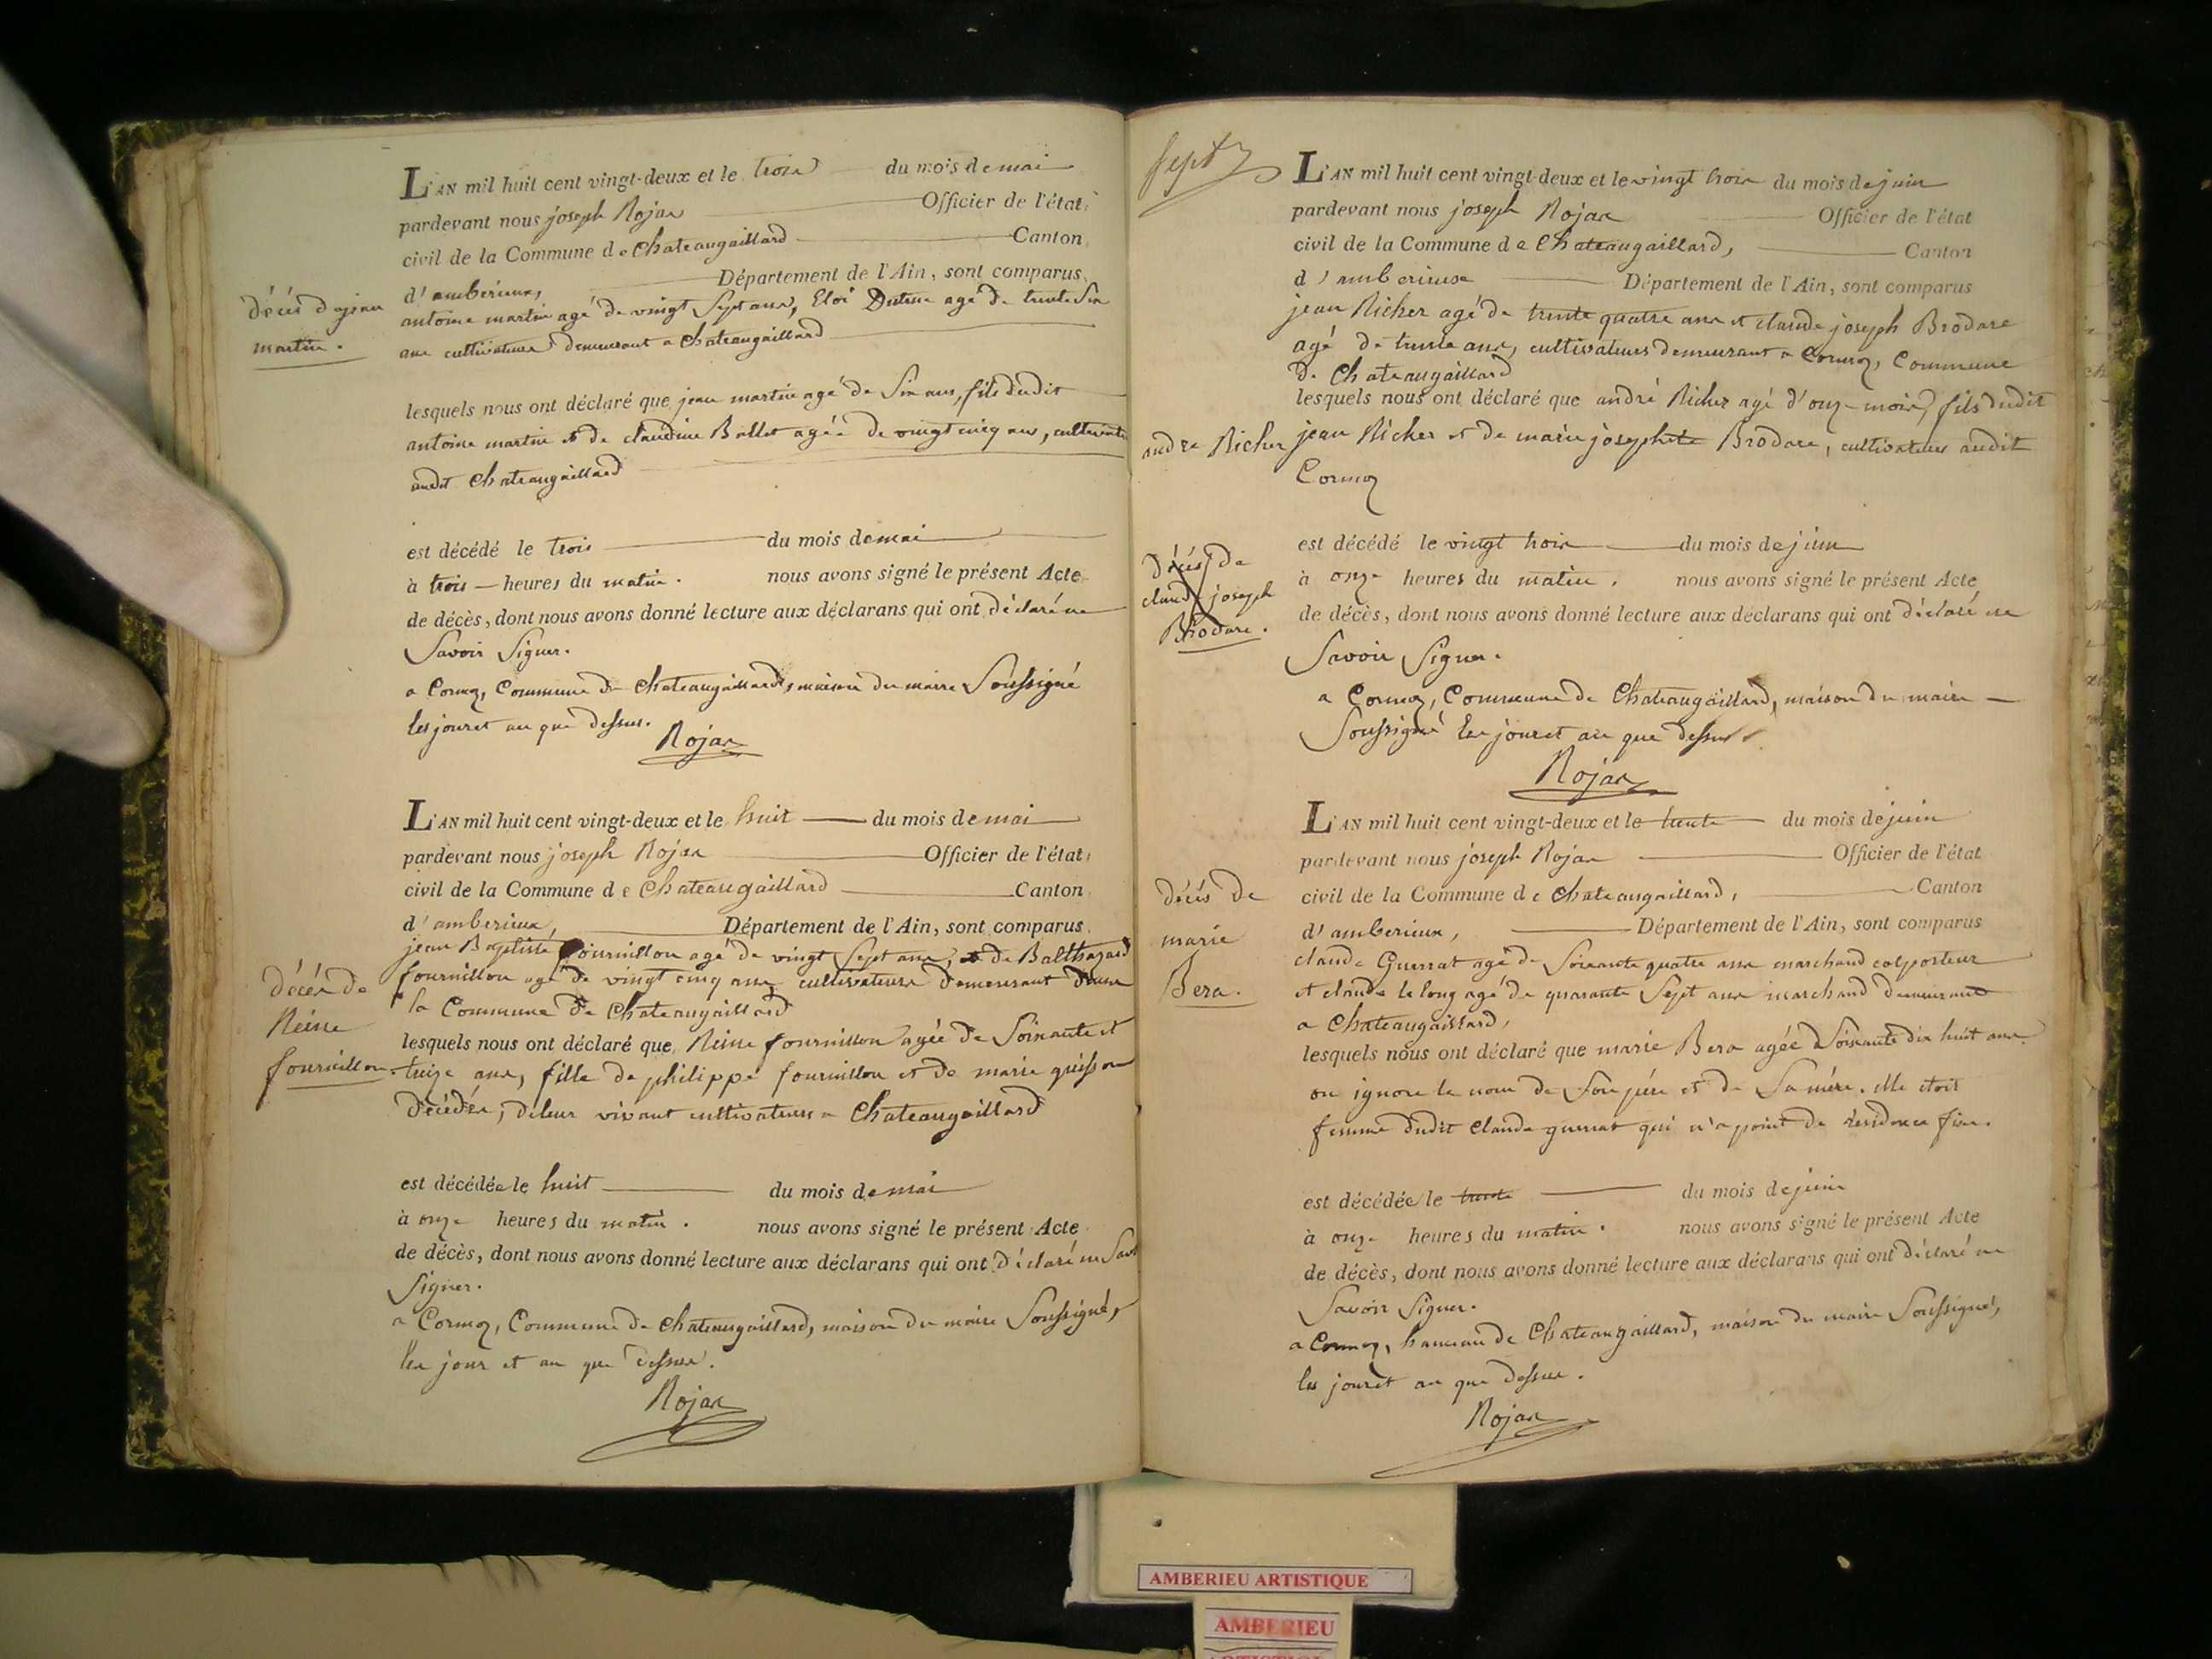 décès de jean
martin.
L'AN mil huit cent vingt-deux et le trois du mois de mai
pardevant nous joseph Rojax Officier de l'état
civil de la Commune de Chateaugaillard Canton
d'amberieux, Département de l'Ain, sont comparus
antoine martin agé de vingt Sept ans, Eloi agé de trente Six
ans cultivateurs demeurant a Chateaugaillard
lesquels nous ont déclaré que jean martin agé de Six ans, fils dudit
antoine martin et de claudine Ballet agée de vingt cinq ans, cultivate
audit Chateaugaillard
est décédé le trois du mois de mai
à trois heures du matin. nous avons signé le présent Acte
de décès, dont nous avons donné lecture aux déclarans qui ont déclaré ne
Savoir Signer.
a Cormoz, Commune de Chateaugaillard, maison du maire Soussigné
les jour et an que dessus.
Rojax
décès de
Reine
fournillon.
L'AN mil huit cent vingt-deux et le huit du mois de mai
pardevant nous joseph Rojax Officier de l'état
civil de la Commune de Chateaugaillard Canton
d'amberieux, Département de l'Ain, sont comparus
jean Baptiste fournillon agé de vingt Sept ans, et de Balthazard
fournillon agé de vingt cinq ans cultivateurs demeurant dans
la Commune de Chateaugaillard
lesquels nous ont déclaré que Reine fournillon agée de Soixante et
treize ans, fille de philippe fournillon et de marie guisson
décédés, de leur vivant cultivateurs a Chateaugaillard
est décédée le huit du mois de mai
à onze heures du matin. nous avons signé le présent Acte
de décès, dont nous avons donné lecture aux déclarans qui ont déclaré ne Savoir
Signer.
a Cormoz, Commune de Chateaugaillard, maison du maire Soussigné,
les jour et an que dessus.
Rojax
sept
L'AN mil huit cent vingt-deux et le vingt trois du mois de juin
pardevant nous joseph Rojax Officier de l'état
civil de la Commune de Chateaugaillard, Canton
d'amberieux Département de l'Ain, sont comparus
jean Richer agé de trente quatre ans et claude joseph Brodare
agé de trente ans, cultivateurs demeurant a Cormoz, Commune
de Chateaugaillard
lesquels nous ont déclaré que andré Richer agé d'onze mois, fils dudit
andre Richer
jean Richer et de marie josephete Brodare, cultivateurs audit
Cormoz
décès de
claude joseph
Brodare.
est décédé le vingt trois du mois de juin
à onze heures du matin. nous avons signé le présent Acte
de décès, dont nous avons donné lecture aux déclarans qui ont déclaré ne
Savoir Signer.
a Cormoz, Commune de Chateaugaillard, maison du maire
Soussigné les jour et an que dessus
Rojax
décès de
marie
Bera.
L'AN mil huit cent vingt-deux et le trente du mois de juin
pardevant nous joseph Rojax Officier de l'état
civil de la Commune de Chateaugaillard, Canton
d'amberieux, Département de l'Ain, sont comparus
claude Guerrat agé de Soixante quatre ans marchand colporteur
et claude le long agé de quarante Sept ans marchand demeurant
a Chateaugaillard,
lesquels nous ont déclaré que marie Bera agée de Soixante dix huit ans
on ignore le nom de Son père et de Sa mère. elle etoit
femme dudit claude guerrat qui n'a point de residence fixe.
est décédée le trente du mois de juin
à onze heures du matin. nous avons signé le présent Acte
de décès, dont nous avons donné lecture aux déclarans qui ont déclaré ne
Savoir Signer.
a Cormoz, hameau de Chateaugaillard, maison du maire Soussigné,
les jour et an que dessus.
Rojax
AMBERIEU ARTISTIQUE
AMBERIEU
ARTISTIQUE